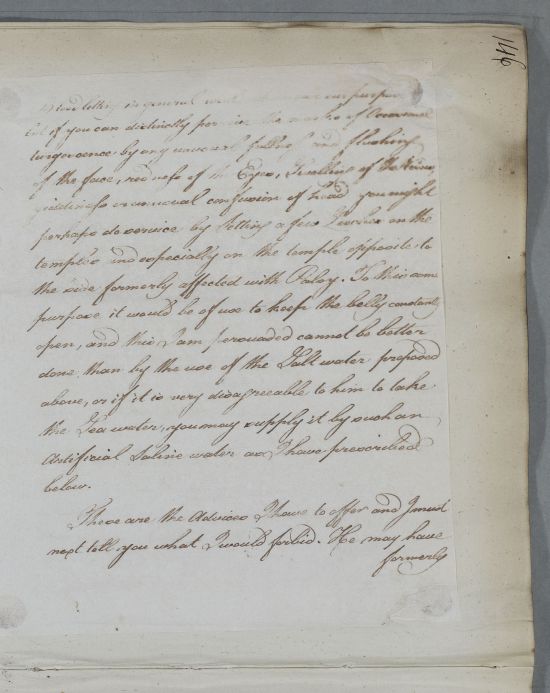 146
blood letting in general will not answer our purpose
but if you can distinctly perceive the marks of Occasional
turgescence by any unusual fullness and flushing
of the face, redness of the Eyes, Swelling of the Veins,
giddiness or unusual confusion of head you might
perhaps do service by Setting a few Leeches on the
temples and especially on the temple opposite to
the side formerly affected with Palsy. To this same
purpose it would be of use to keep the belly constantly
open, and this I am persuaded cannot be better
done than by the use of the Salt water proposed
above, or if it is very disagreeable to him to take
the Sea water, you may supply it by such an
Artificial Saline water as I have prescribed
below.
These are the Advices I have to offer and I must
next tell you what I would forbid. He may have
formerly